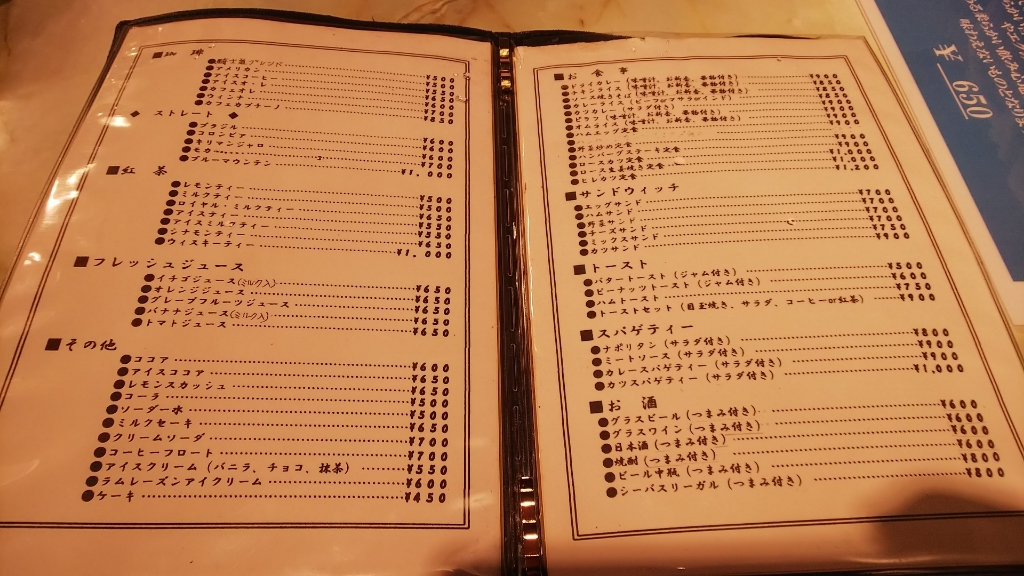 ■珈 琲
●アメリカン ¥500
●アイスコーヒー
●カフェオレ
●カフェカプチーノ ¥650
◆ ストレート ◆
●ブラジル ¥600
●コロンビア ¥600
●キリマンジャロ
●モカ ¥700
●ブルーマウンテン ¥1,000
■紅 茶
●レモンティー ¥500
●ミルクティー ¥500
●ロイヤル ミルクティー ¥650
●アイスティー ¥550
●アイスミルクティー ¥550
●シナモンティー ¥650
●ウィスキーティー ¥1,000
■フレッシュジュース
●イチゴジュース(ミルク入) ¥650
●オレンジジュース ¥650
●グレープフルーツジュース ¥650
●バナナジュース(ミルク入) ¥650
●トマトジュース ¥650
■その他
●ココア ¥600
●アイスココア ¥650
●レモンスカッシュ ¥650
●コーラ ¥500
●ソーダー水 ¥500
●ミルクセーキ ¥650
●クリームソーダ ¥700
●コーヒーフロート ¥700
●アイスクリーム (バニラ、チョコ、抹茶) ¥550
●ラムレーズンアイクリーム ¥600
●ケーキ ¥450
■お 食 事
●野菜炒め定食
●ハンバーグステーキ定食
●ロースカツ定食
●ロース生姜焼き定食
●ヒレカツ定食 ¥1,200
■サンドウィッチ
●エッグサンド ¥700
●ハムサンド ¥700
●野菜サンド ¥700
●チーズサンド ¥700
●ミックスサンド ¥750
●カツサンド ¥900
■トースト
●バタートースト (ジャム付き) ¥500
●ピーナッツトースト (ジャム付き) ¥600
●ハムトースト ¥750
●トーストセット (目玉焼き、サラダ、コーヒーor紅茶) ¥900
■スパゲティー
●ナポリタン (サラダ付き) ¥800
●ミートソース (サラダ付き) ¥900
●カレースパゲティー (サラダ付き) ¥900
●カツスパゲティー (サラダ付き) ¥1,000
■お 酒
●グラスビール (つまみ付き) ¥600
●グラスワイン (つまみ付き) ¥600
●日本酒 (つまみ付き) ¥600
●焼酎 (つまみ付き) ¥600
●ビール中瓶 (つまみ付き) ¥800
●シーバスリーガル (つまみ付き) ¥800
¥ 650